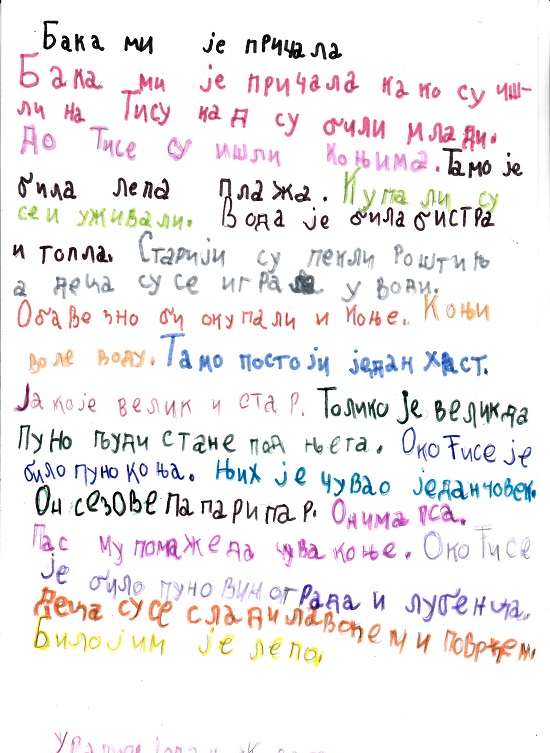 Бака ми је причала
Бака ми је причала како су иш-
ли на Тису кад су били млади.
До Тисе су ишли коњима. Тамо је
била лепа плажа. Купали су
се и уживали. Вода је била бистра
и топла. Старији су пекли роштиљ
а деца су се играла у води.
Обавезно би окупали и коње. Коњи
воле воду. Тамо постоји један храст.
Јако је велик и стар. Толико је велик да
пуно људи стане под њега. Око Тисе је
било пуно коња. Њих је чувао један човек.
Он се зове Папарипар. Он има пса.
Пас му помаже да чува коње. Око Тисе
је било пуно винограда и лубеница.
Деца су се сладила воћем и поврћем.
Било јим је лепо.